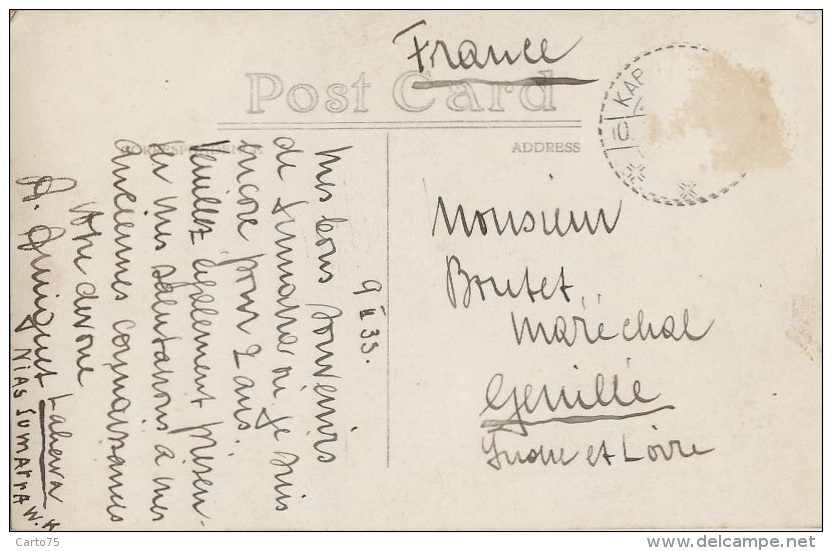 France
Post Card
CORRESPONDENCE
ADDRESS
10
KAP
Monsieur
Boutet
Maréchal
Genillé
Indre et Loire
9 II 33.
Mes bons souvenirs
de Sumatra où je suis
encore pour 2 ans.
Veuillez également présen-
ter mes salutations à mes
anciennes connaissances
Votre dévoué
Lahewa
NIAS SUMATRA W.K
© Carto75
www.delcampe.net